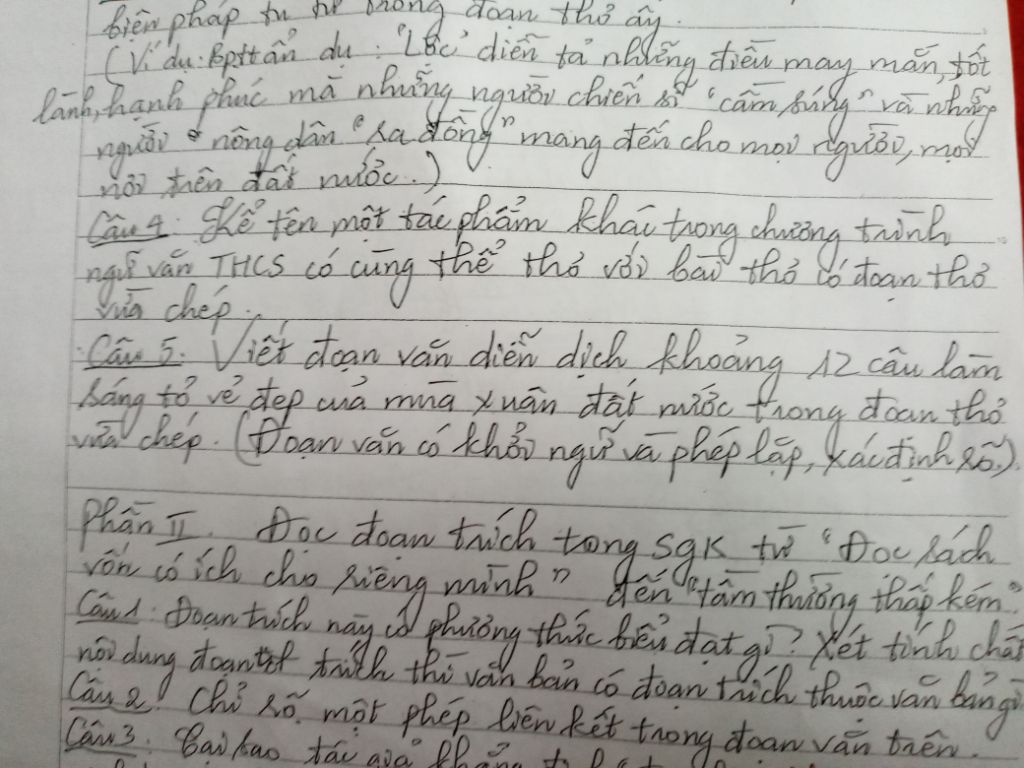 biện pháp tu từ trong đoạn thơ ấy.
(Ví dụ: Bptt ẩn dụ: "Lộc" diễn tả những điều may mắn, tốt
lành, hạnh phúc mà những người chiến sĩ "cầm súng" và những
người nông dân "ra đồng" mang đến cho mọi người, mọi
nơi trên đất nước.)
Câu 4: Kể tên một tác phẩm khác trong chương trình
ngữ văn THCS có cùng thể thơ với bài thơ có đoạn thơ
vừa chép.
Câu 5: Viết đoạn văn diễn dịch khoảng 12 câu làm
sáng tỏ vẻ đẹp của mùa xuân đất nước trong đoạn thơ
vừa chép. (Đoạn văn có khởi ngữ và phép lặp, xác định rõ).
Phần II. Đọc đoạn trích tong SGK từ "Đọc sách
vốn có ích cho riêng mình" đến "tầm thường thấp kém".
Câu 1: Đoạn trích này có phương thức biểu đạt gì? Xét tính chất
nội dung đoạn trích thì văn bản có đoạn trích thuộc văn bản gì
Câu 2: Chỉ rõ một phép liên kết trong đoạn văn trên.
Câu 3: Tại sao tác giả